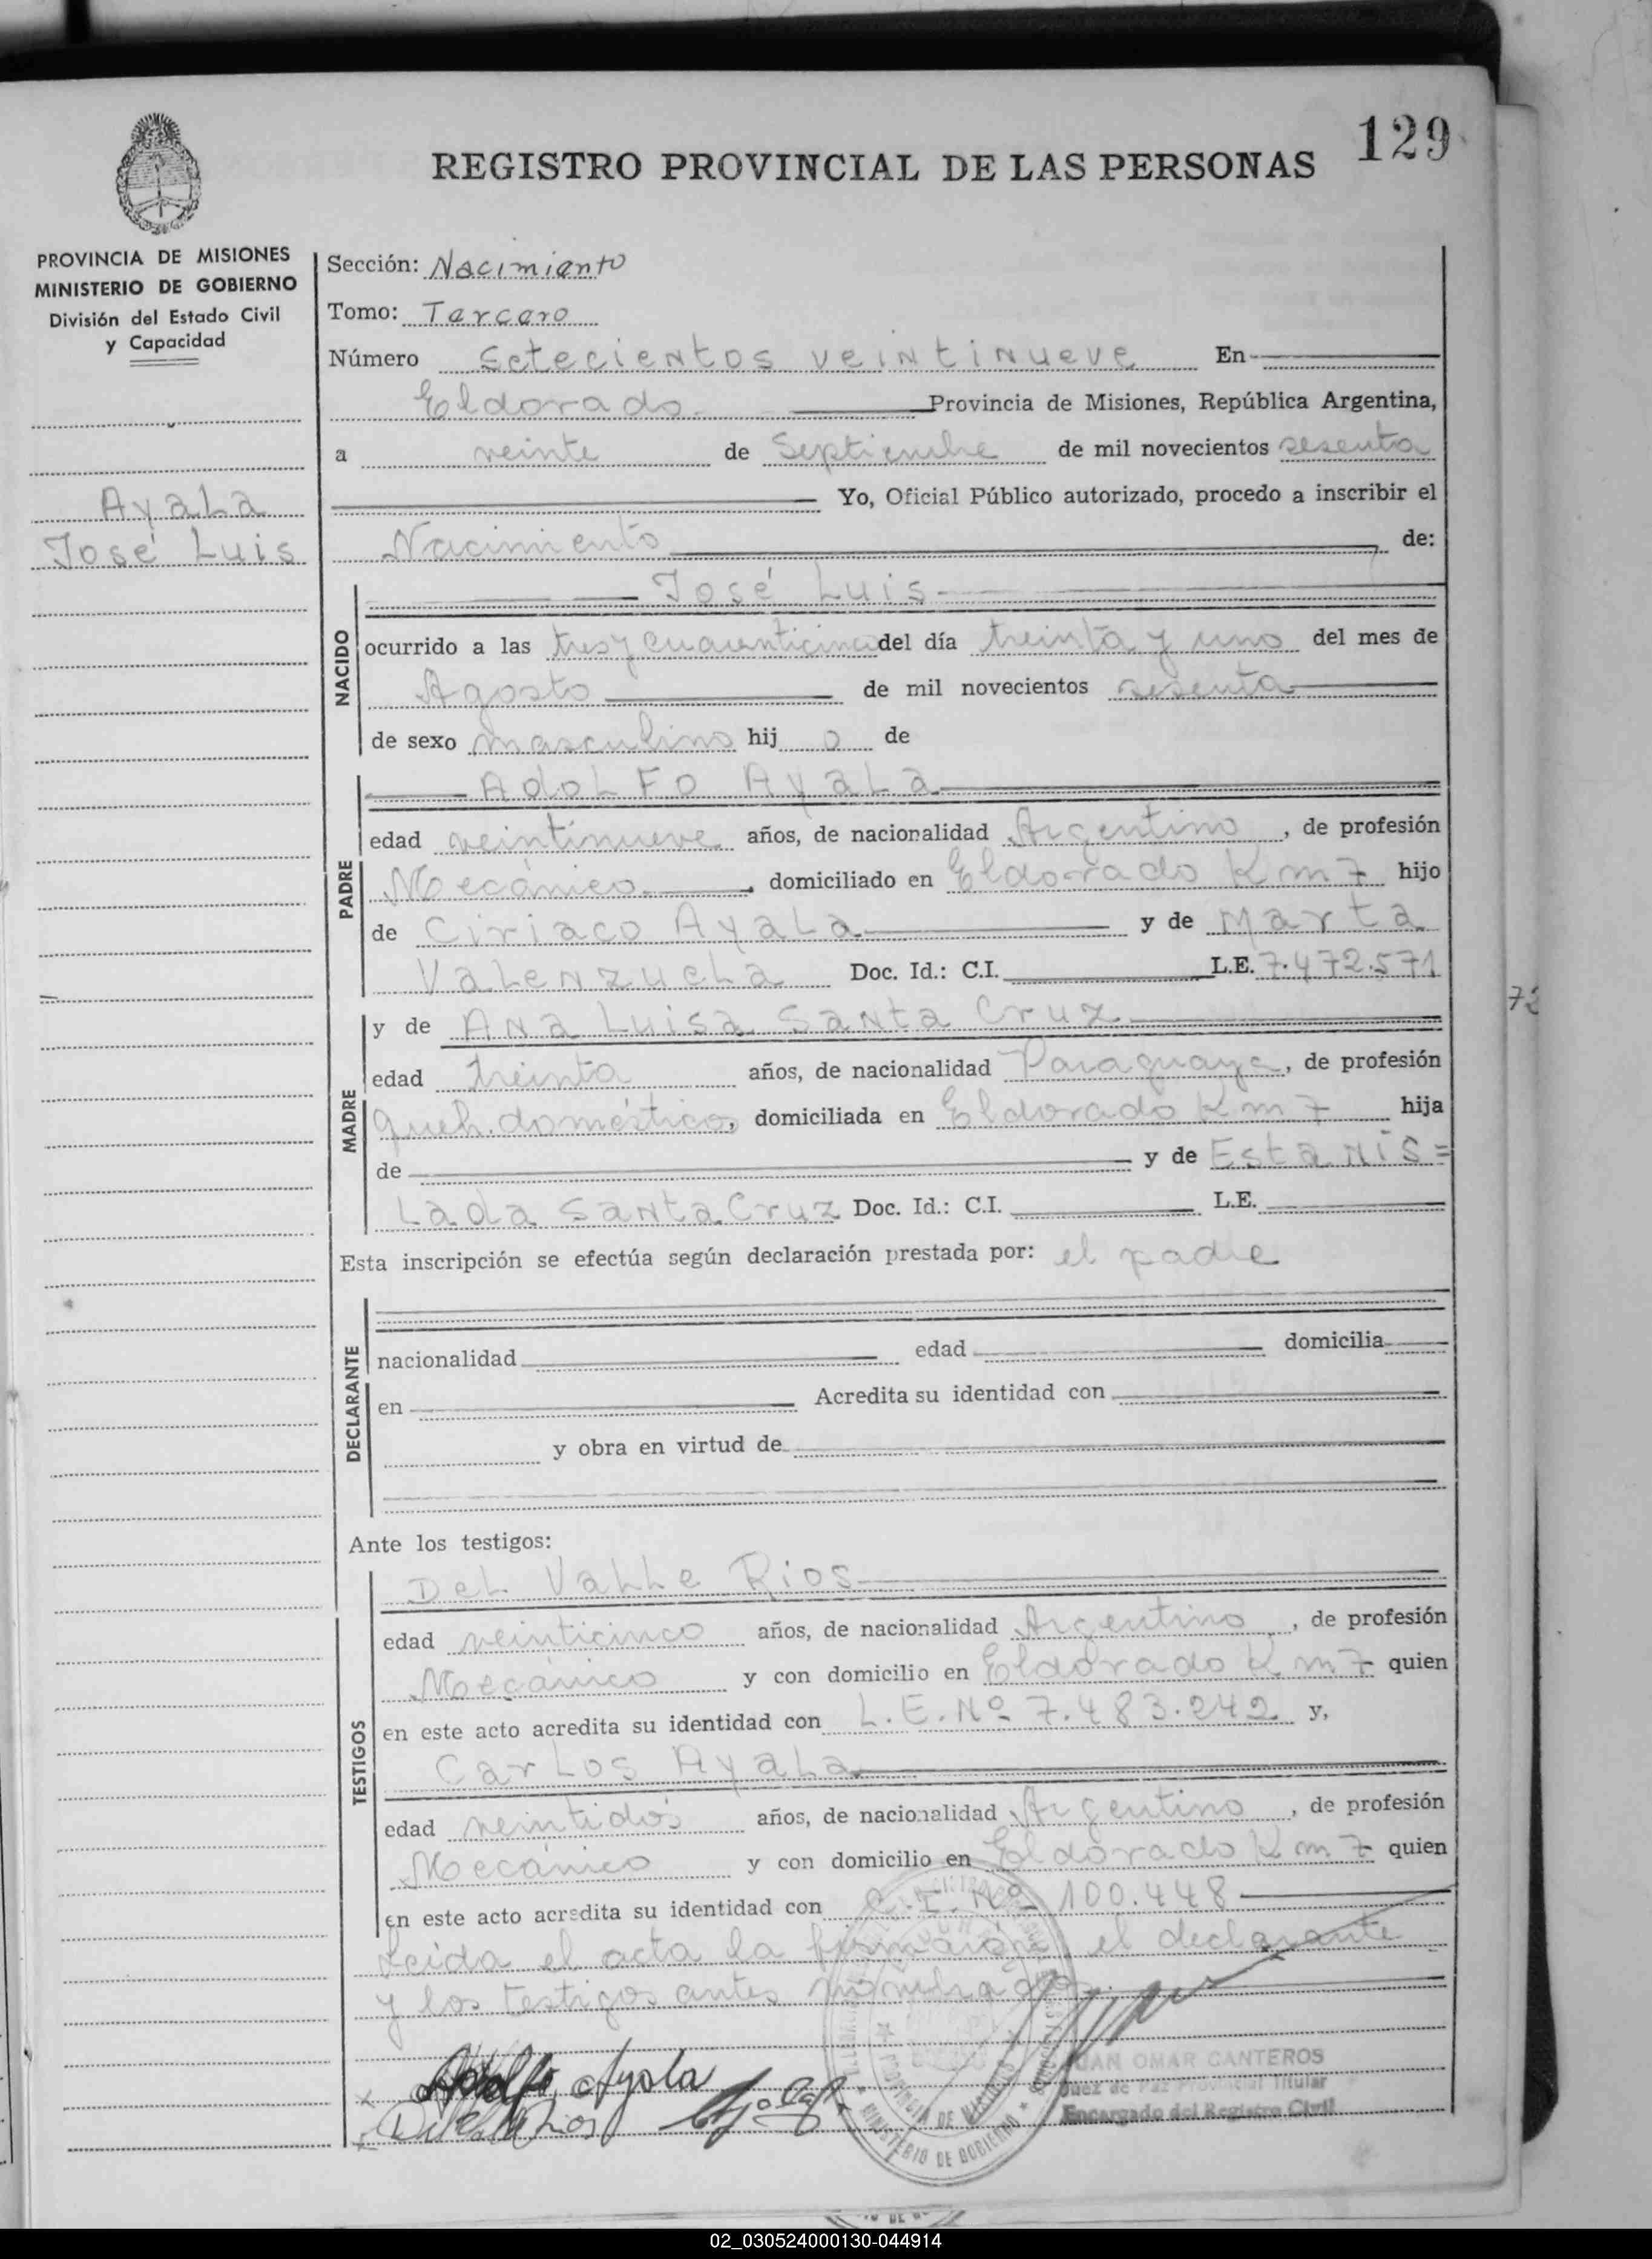 129
REGISTRO PROVINCIAL DE LAS PERSONAS
PROVINCIA DE MISIONES
MINISTERIO DE GOBIERNO
División del Estado Civil
y Capacidad
Ayala
José Luis
Sección: Nacimiento
Tomo: Tercero
Número Setecientos veintinueve En
Eldorado Provincia de Misiones, República Argentina,
a veinte de Septiembre de mil novecientos sesenta
Yo, Oficial Público autorizado, procedo a inscribir el
Nacimiento de:
NACIDO
José Luis
ocurrido a las tres y cuarenticinco del día treinta y uno del mes de
Agosto de mil novecientos sesenta
de sexo masculino hij o de
PADRE
Adolfo Ayala
edad veintinueve años, de nacionalidad Argentino, de profesión
Mecánico, domiciliado en Eldorado Km 7 hijo
de Ciriaco Ayala y de Marta
Valenzuela Doc. Id.: C.I. L.E. 7.472.571
72
MADRE
y de Ana Luisa Santa Cruz
edad treinta años, de nacionalidad Paraguaya, de profesión
queh. doméstico, domiciliada en Eldorado Km 7 hija
de y de Estanis=
lada Santa Cruz Doc. Id.: C.I. L.E.
Esta inscripción se efectúa según declaración prestada por: el padre
DECLARANTE
nacionalidad edad domicilia
en Acredita su identidad con
y obra en virtud de
Ante los testigos:
TESTIGOS
Del Valle Rios
edad veinticinco años, de nacionalidad Argentino, de profesión
Mecánico y con domicilio en Eldorado Km 7 quien
en este acto acredita su identidad con L.E. Nº 7.483.242 y,
Carlos Ayala
edad veintidos años, de nacionalidad Argentino, de profesión
Mecánico y con domicilio en Eldorado Km 7 quien
en este acto acredita su identidad con C.I. Nº 100.448
Leida el acta la firmarón el declarante
y los testigos antes nombrados.
Adolfo Ayala
JUAN OMAR CANTEROS
Juez de Paz Provincial Titular
Encargado del Registro Civil
PROVINCIA DE MISIONES
MINISTERIO DE GOBIERNO
02_030524000130-044914